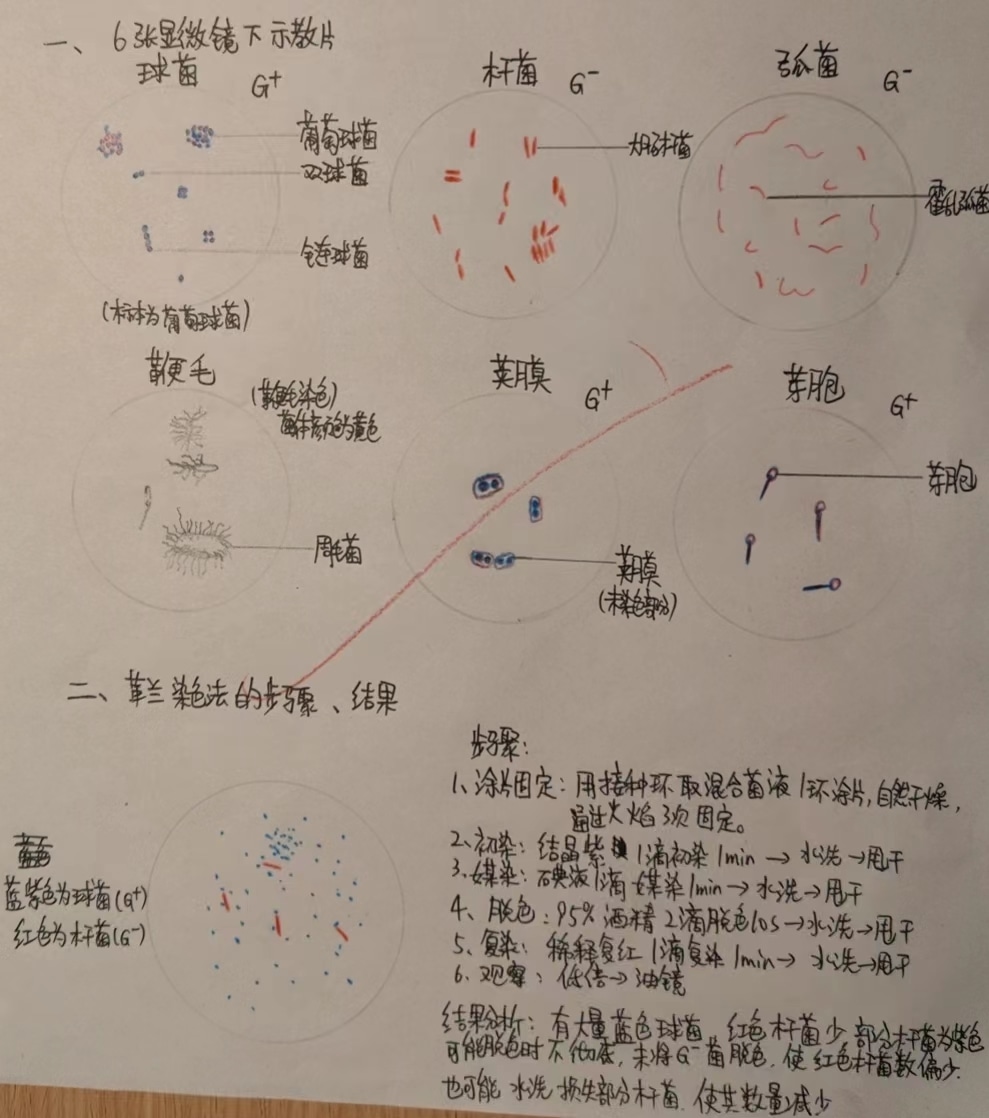 一、6张显微镜下示教片
球菌 G+
葡萄球菌
双球菌
链球菌
(标本为葡萄球菌)
杆菌 G-
大肠杆菌
弧菌 G-
霍乱弧菌
鞭毛
(鞭毛染色)
菌体颜色为黄色
周毛菌
荚膜 G+
荚膜
(未染色部分)
芽胞 G+
芽胞
二、革兰染色法的步骤、结果
蓝紫色为球菌(G+)
红色为杆菌(G-)
步骤:
1、涂片固定:用接种环取混合菌液1环涂片,自然干燥,
通过火焰3次固定。
2、初染:结晶紫1滴初染1min→水洗→甩干
3、媒染:碘液1滴媒染1min→水洗→甩干
4、脱色:95%酒精2滴脱色10s→水洗→甩干
5、复染:稀释复红1滴复染1min→水洗→甩干
6、观察:低倍→油镜
结果分析:有大量蓝色球菌,红色杆菌少,部分杆菌为紫色
可能脱色时不彻底,未将G-菌脱色,使红色杆菌数偏少.
也可能水洗损失部分杆菌,使其数量减少